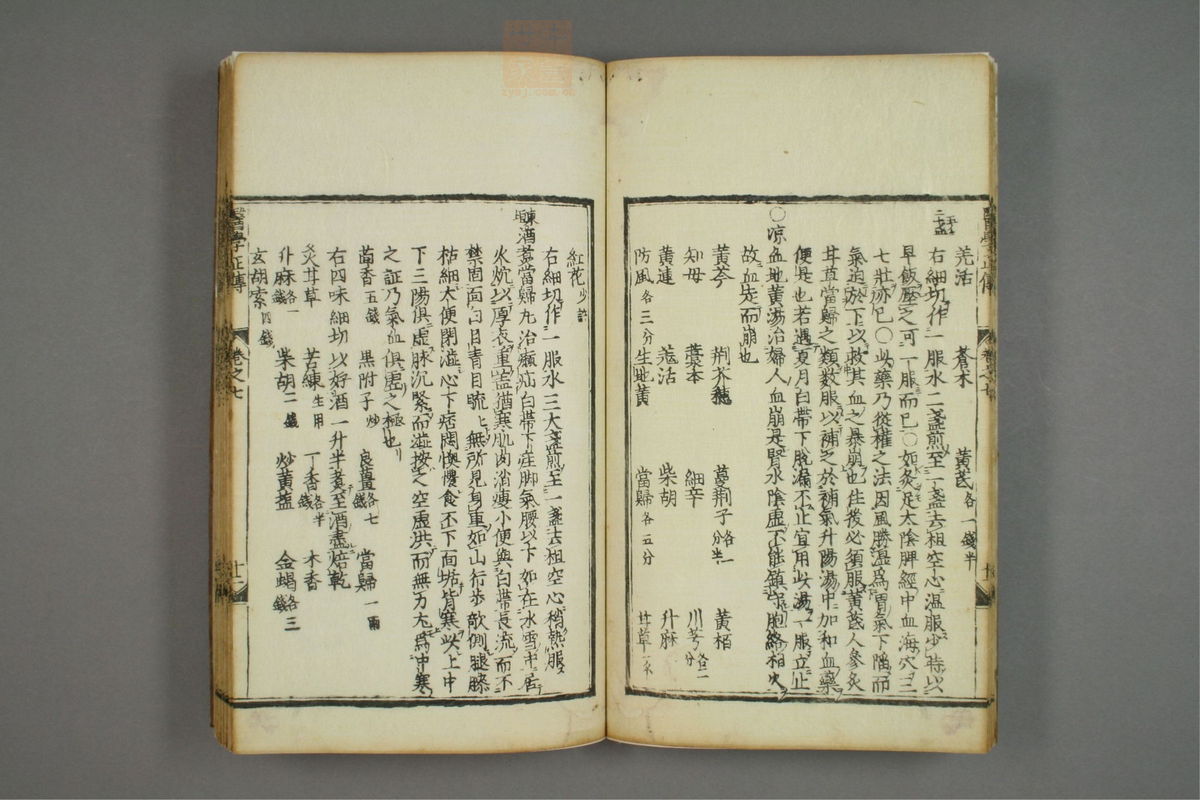 羌活 蒼朮 黃芪各一錢半
右細切作一服水二盞煎至一盞去柤空心温服少時以
早飯壓之可一服而已○如灸足太陰脾經中血海穴二三
七壯亦已○此藥乃從權之法因風勝濕爲胃氣下陷而
氣迫於下以救其血之暴崩也住後必須服黃芪人參炙
甘草當歸之類數服以補之於補氣升陽湯中加和血藥
便是也若遇夏月白帶下脫漏不止宜用此湯一服立止
○凉血地黃湯治婦人血崩是腎水陰虛不能鎮守胞絡相火
故血走而崩也
黃芩 荆芥穗 蔓荆子各一分半 黃栢
知母 藁本 細辛 川芎各二分
黃連 羌活 柴胡 升麻
防風各三分 生地黃 當歸各五分 甘草一錢
紅花少許
右細切作一服水三大盞煎至一盞去柤空心稍熱服
東垣酒煑當歸丸治癩疝白帶下疰脚氣腰以下如在氷雪中居
火炕以厚衣重盖猶寒肌肉消瘦小便與白帶長流而不
禁固面白目青目䀮々無所見身重如山行步欹側腿膝
枯細大便閉澁心下痞悶懊憹食不下面垢背寒此上中
下三陽俱虛脉沉緊而澁按之空虛洪而無力尤爲中寒
之証乃氣血俱虛之極也
茴香五錢 黑附子炒 良薑各七錢 當歸一兩
右四味細切以好酒一升半煑至酒盡焙乾
炙甘草 苦練生用 丁香各半錢 木香
升麻各一錢 柴胡二錢 炒黃塩 金蝎各三錢
玄胡索四錢
醫學正傳 卷之七 十二